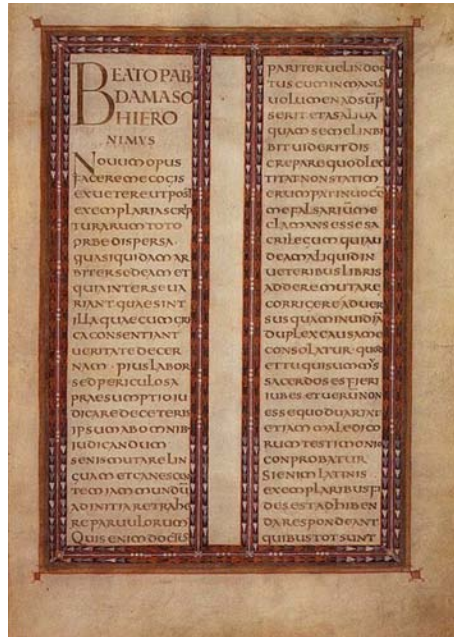 BEATO PAP
DAMASO
HIERO
NIMVS
Novum opus
facere me cogis
ex uetere ut post
exemplaria scrip
turarum toto
orbe dispersa
quasi quidam ar
biter sedeam et
quia inter se ua
riant quae sint
illa quae cum gre
ca consentiant
ueritate decer
nam · pius labor
sed periculosa
praesumptio iu
dicare de ceteris
ipsum ab omnib
iudicandum
senis mutare lin
guam et canescen
tem iam mundu
ad initia retrahe
re paruulorum
Quis enim doctus
pariter uel indoc
tus cum in manus
uolumen adsup
serit et a saliua
quam semel inbi
bit uiderit dis
crepare quod lec
titat non statim
erumpat in uoce
me falsarium me
clamans esse sa
crilegum qui au
deam aliquid in
ueteribus libris
addere mutare
corrigere aduer
sus quam inuidia
duplex causa me
consolatur quod
et tu qui summus
sacerdos es fieri
iubes et uerum non
esse quod uariat
etiam maledico
rum testimonio
conprobatur
Si enim latinis
exemplaribus fi
des est adhiben
da respondeant
quibus tot sunt